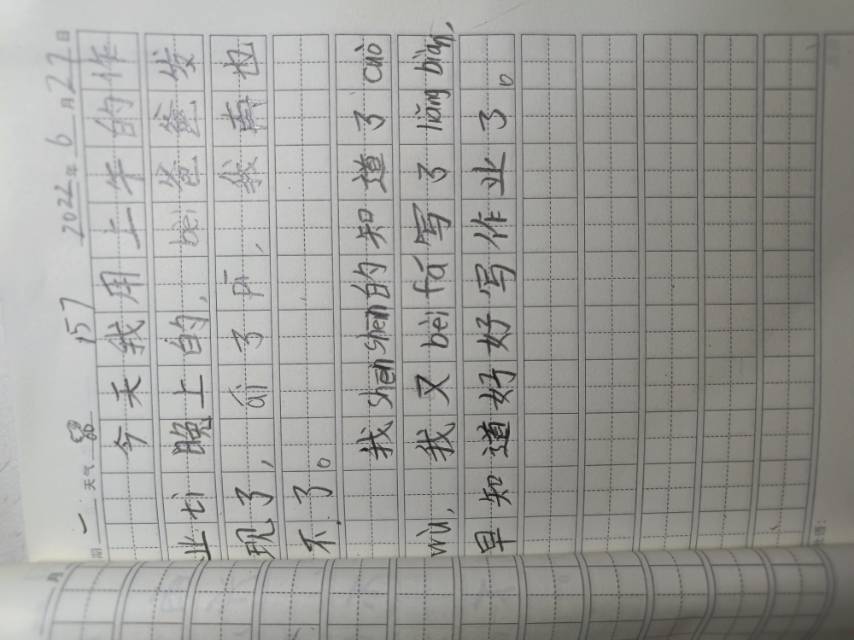 一 天气 157 2022年6月27日
今天我用上午的作
业ti晚上的，bèi爸爸发
现了，ái了pī，我再也
不了。
我shenshen的知道了cuò
wù，我又bèi fá写了liǎng biàn，
早知道好好写作业了。